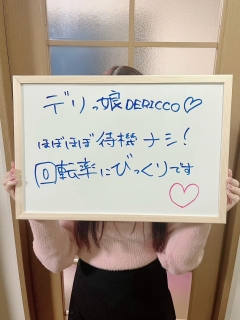 デリっ娘DERICCO♡
ほぼほぼ待機ナシ!
回転率にびっくりです